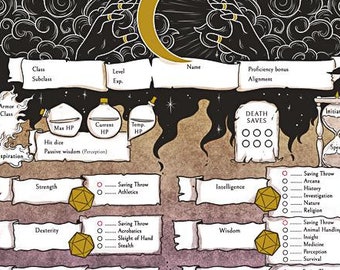 Class
Subclass
Level
Exp.
Name
Proficiency bonus
Alignment
Armor
Class
Max
HP
Current
HP
Temp.
HP
DEATH
SAVES
Hit dice
Passive wisdom (Perception)
Strength
Saving Throw
Athletics
Intelligence
Saving Throw
Arcana
History
Investigation
Nature
Religion
Dexterity
Saving Throw
Acrobatics
Sleight of Hand
Stealth
Wisdom
Saving Throw
Animal Handling
Insight
Medicine
Perception
Survival